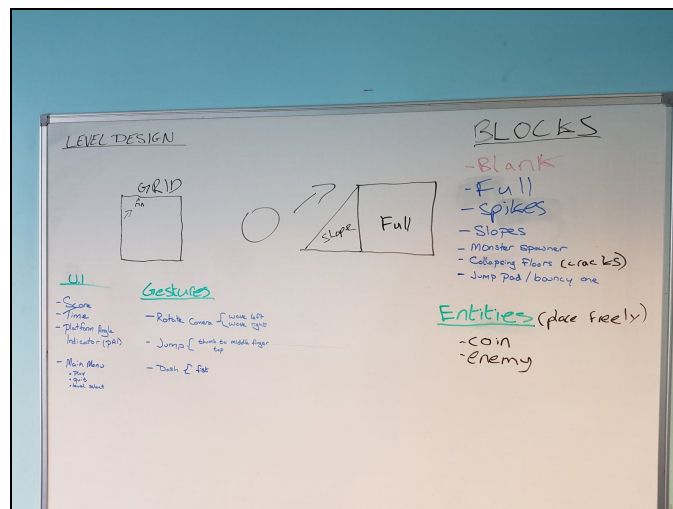 LEVEL DESIGN
GRID
Slope
Full
BLOCKS
- Blank
- Full
- Spikes
- Slopes
- Monster Spawner
- Collapsing Floors (cracks)
- Jump Pad / bouncy one
Entities (place freely)
- coin
- enemy
UI
- Score
- Time
- Platform Angle
Indicator (PAI)
- Main Menu
• Play
• quit
• level select
Gestures
- Rotate Camera { wave left
wave right
- Jump { thumb to middle finger
tap
- Dash { fist